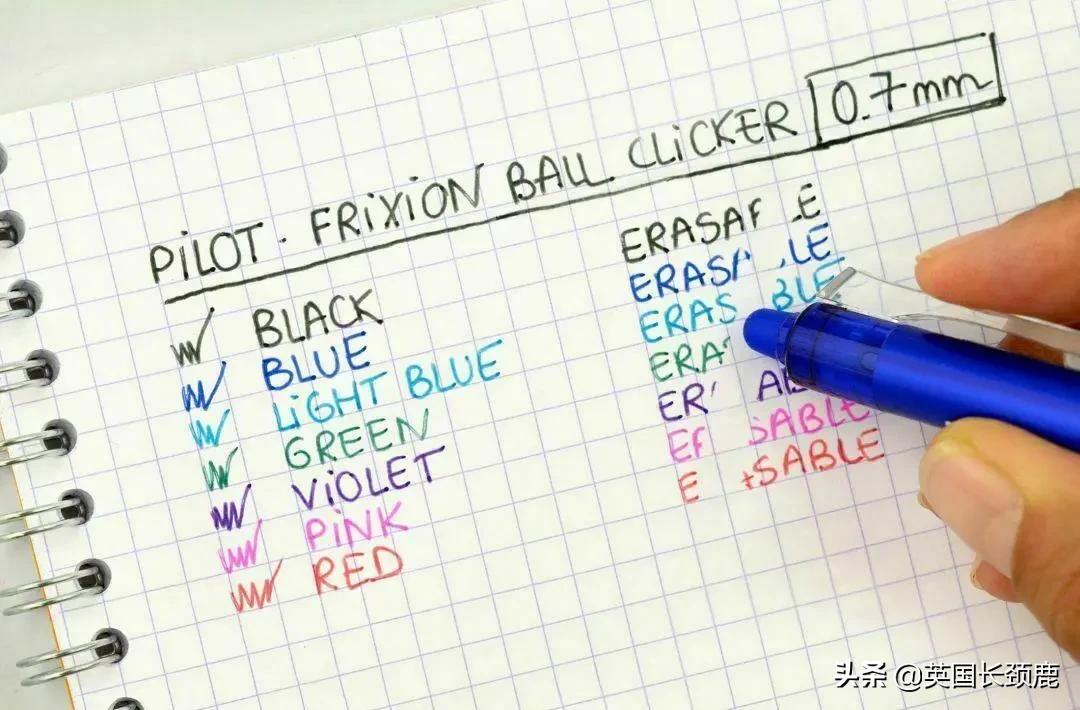 PiLOT. FRiXiON BALL CLiCKER 0.7mm
BLACK
BLUE
LiGHT BLUE
GREEN
ViOLET
PiNK
RED
ERASA LE
ERASA LE
ERAS BLE
ERA
ER AB
E SABLE
E SABLE
头条 @英国长颈鹿